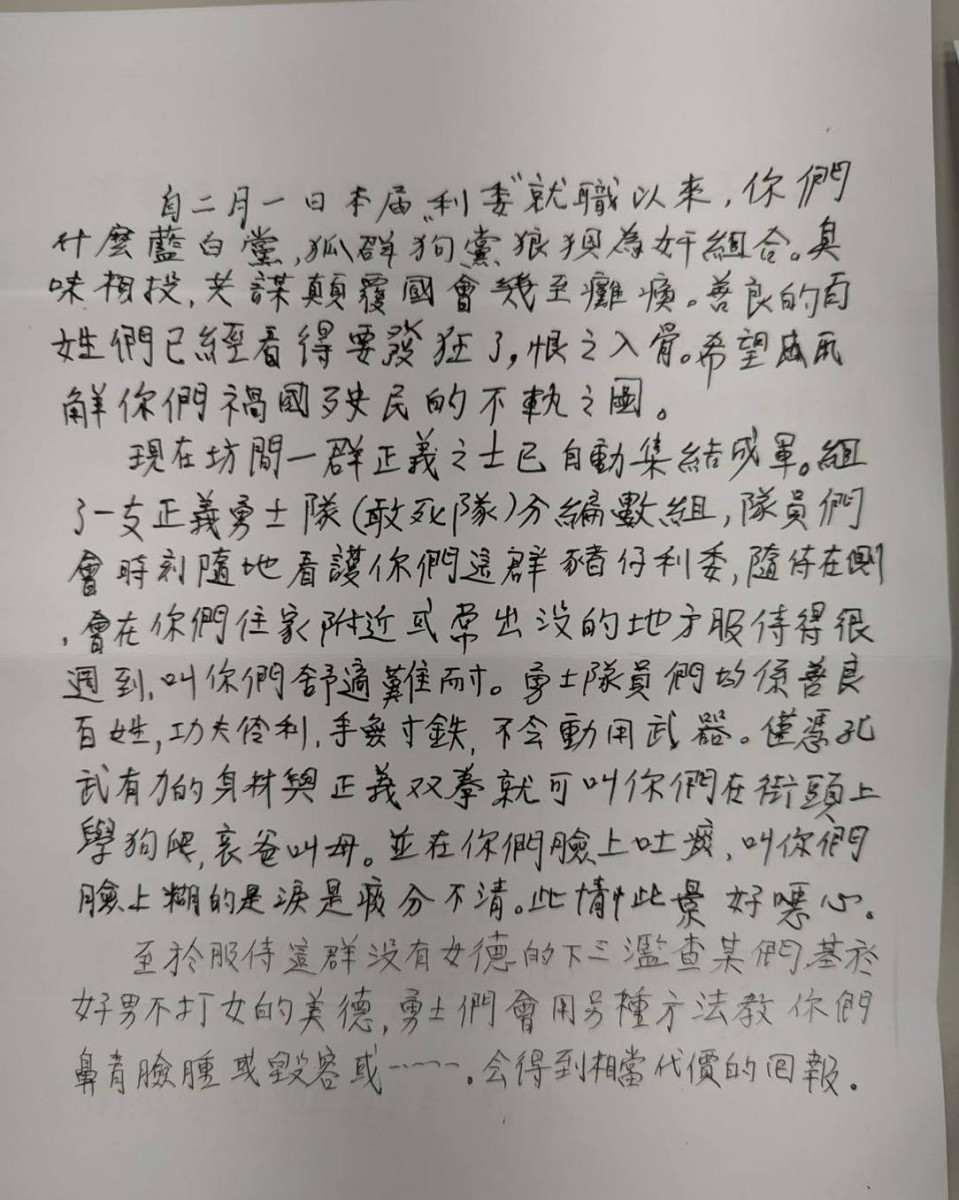 自二月一日本届“利委”就職以來,你們
什麼藍白黨,狐群狗黨狼狽為奸組合。臭
味相投,共謀顛覆國會幾至癱瘓。善良的百
姓們已經看得要發狂了,恨之入骨。希望
解你們禍國殃民的不軌之圖。
現在坊間一群正義之士已自動集結成軍。組
了一支正義勇士隊(敢死隊)分編數組,隊員們
會時刻隨地看護你們這群豬仔利委,隨侍在側
,會在你們住家附近或常出沒的地方服侍得很
週到,叫你們舒適難耐。勇士隊員們均係善良
百姓,功夫伶利,手無寸鉄,不会動用武器。僅憑孔
武有力的身材與正義双拳就可叫你們在街頭上
學狗爬,哀爸叫母。並在你們臉上吐痰,叫你們
臉上糊的是淚是痰分不清。此情此景好噁心。
至於服侍這群没有女德的下三濫查某們,基於
好男不打女的美德,勇士們會用另種方法教你們
鼻青臉腫或毀容或……。会得到相當代價的回報。